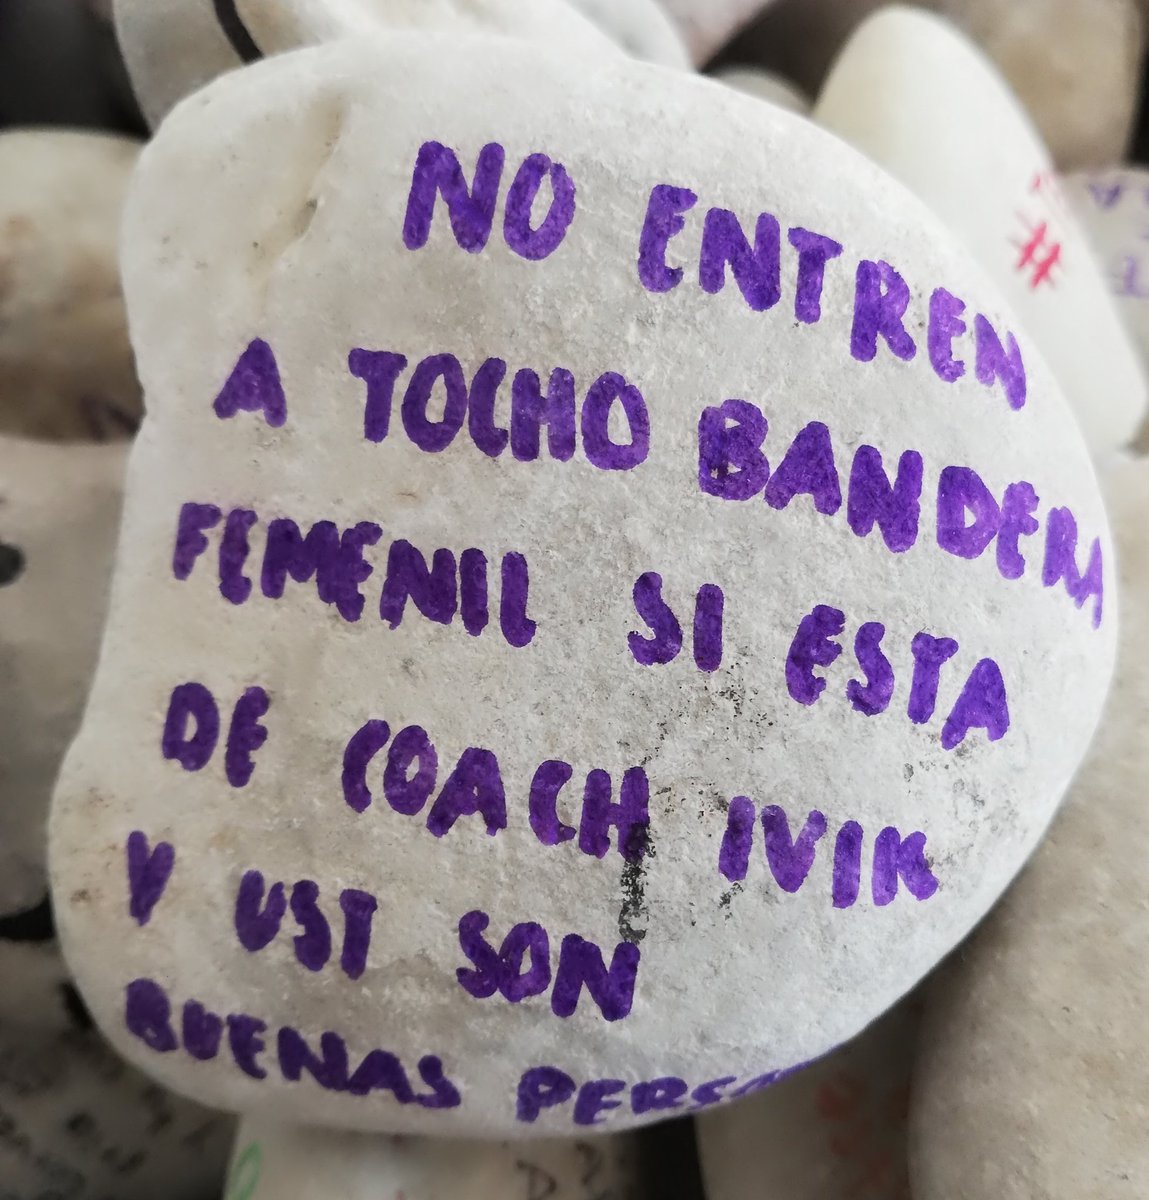 NO ENTREN
A TOCHO BANDERA
FEMENIL SI ESTA
DE COACH IVIK
Y UST SON
BUENAS
#